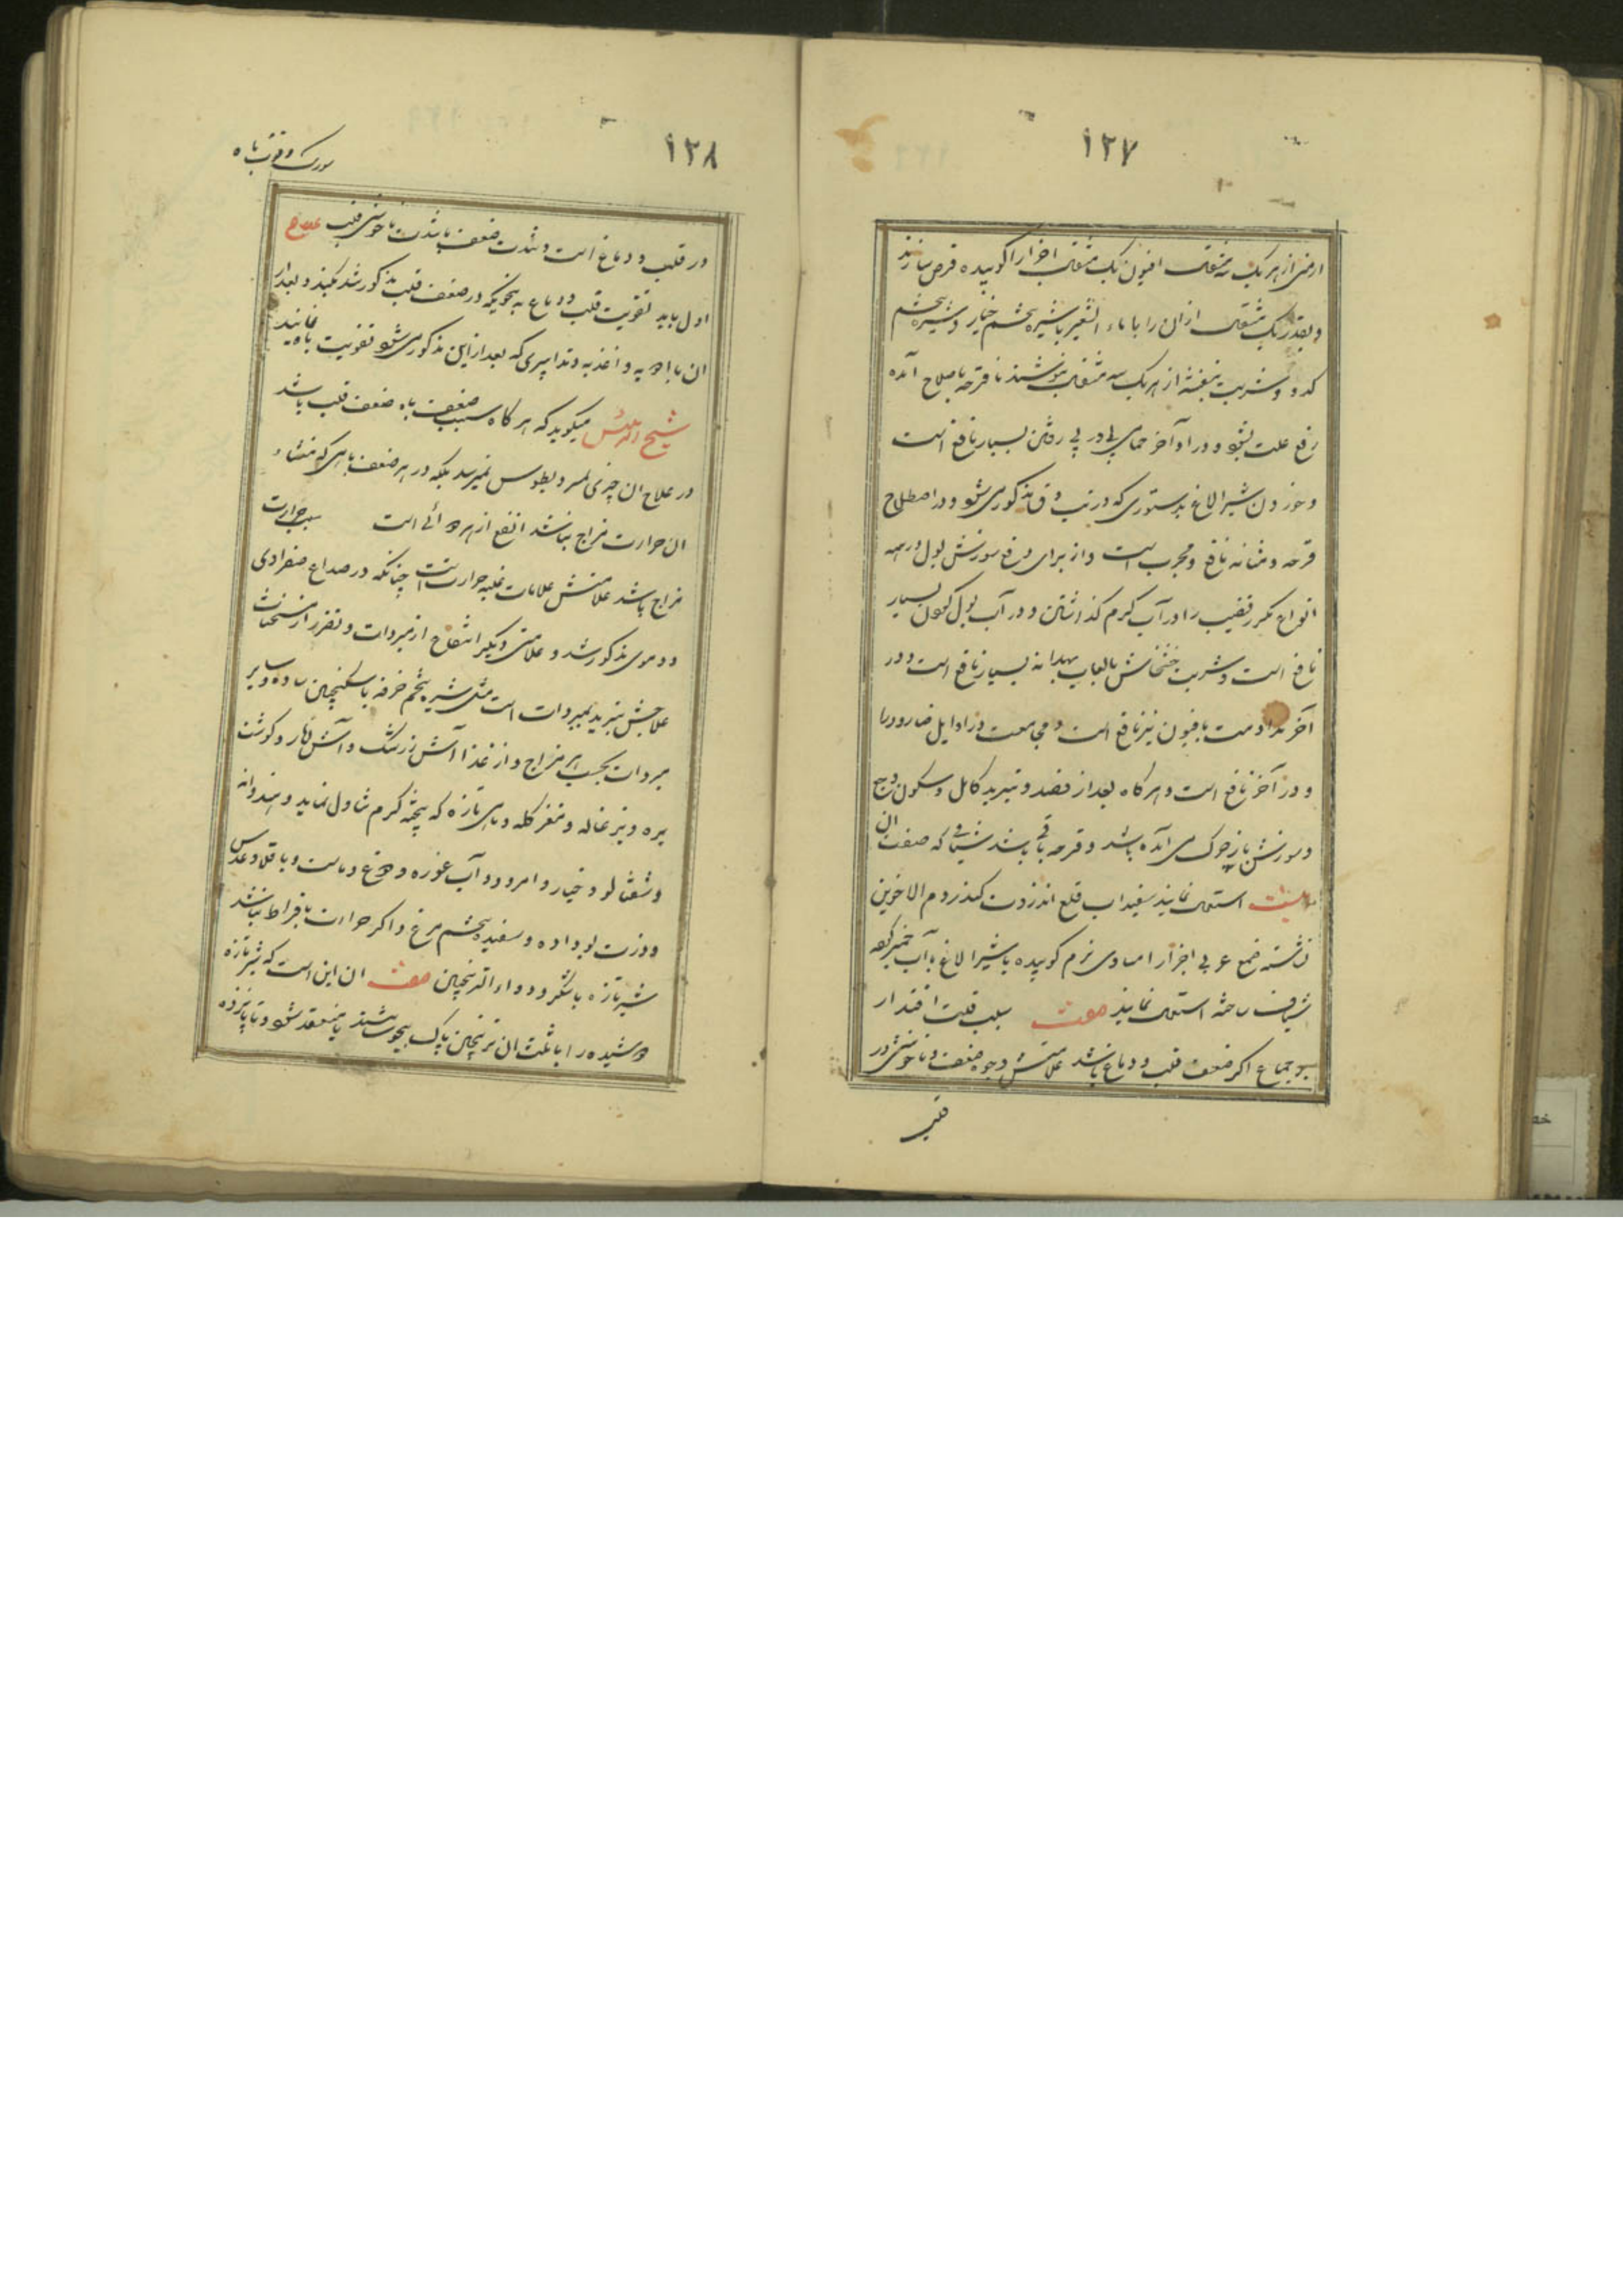 ۱۲۷
ارمنی از هر یک سه مثقال افیون یک مثقال اجزا را کوبیده قرص سازند
و بقدر یک مثقال از ان را با ماء الشعیر یا شیره تخم خیار و شیره تخم
کدو و شربت بنفشه از هر یک سه مثقال بنوشند تا قرحه باصلاح آمده
رفع علت بشود و در اواخر حمام پی در پی رفتن بسیار نافع است
و خوردن شیر الاغ بدستوری که در تب دق مذکور می شود در اصطلاح
قرحه و مثانه نافع و مجرب است و از برای رفع سوزش بول در همه
انواع مکرر قضیب را در آب گرم گذاشتن و در آب بول کردن بسیار
نافع است و شربت خشخاش بالعاب بهدانه بسیار نافع است و در
آخر مداومت بافیون نیز نافع است و مجامعت در اوایل ضار دورا
و در آخر نافع است و هرگاه بعد از فصد و تبرید کامل و سکون وجع
و سوزش باز چرک می آمده باشد و قرحه باقی باشد شیافی که صفت ان
اینست استعمال نمایند سفیداب قلع انزروت کندر دم الاخوین
نشسته صمغ عربی اجزا را مساوی نرم کوبیده با شیر الاغ یا آب خمیر کرده
شیاف ساخته استعمال نمایند صفت سبب قلت اقتدار
بر جماع اگر ضعف قلب و دماغ باشد علامتش وجود ضعف و ناخوشی در
قلب
۱۲۸
در قلب و دماغ است و شدت ضعف باشدت ناخوشی قلب علاج
اول باید تقویت قلب و دماغ به نحویکه در ضعف قلب مذکور شد بکنند و بعد از
ان با ادویه و اغذیه و تدابیری که بعد از این مذکور می شود تقویت باه نمایند
شیخ الرئیس میگوید که هر گاه سبب ضعف باه ضعف قلب باشد
در علاج ان چیزی بمسرودیطوس نمیرسد بلکه در هر ضعف باهی که منشاء
ان حرارت مزاج نباشد انفع از هر دوائی است سبب حرارت
مزاج باشد علامتش علامات غلبه حرارتست چنانکه در صداع صفراوی
و دموی مذکور شد و علامتی دیگر انتفاع از مبردات و تضرر از مسخنات
علاجش تبرید بمبردات است مثل شیره تخم خرفه با سکنجبین ساده و سایر
مبردات بحسب هر مزاج و از غذا آش زرشک و آش انار و گوشت
بره و بزغاله و مغز کله و ماهی تازه که پخته گرم تناول نماید و هندوانه
و شفتالو و خیار و امرود و آب غوره و دوغ و ماست و باقلا و عدس
و ذرت بو داده و سفیده تخم مرغ و اگر حرارت بافراط نباشد
شیر تازه با شکر و دواء الترنجبین صفت ان این است که شیر تازه
دوشیده را با ثلث ان ترنجبین پاک بجوشانند تا منعقد شود و تا پانزده